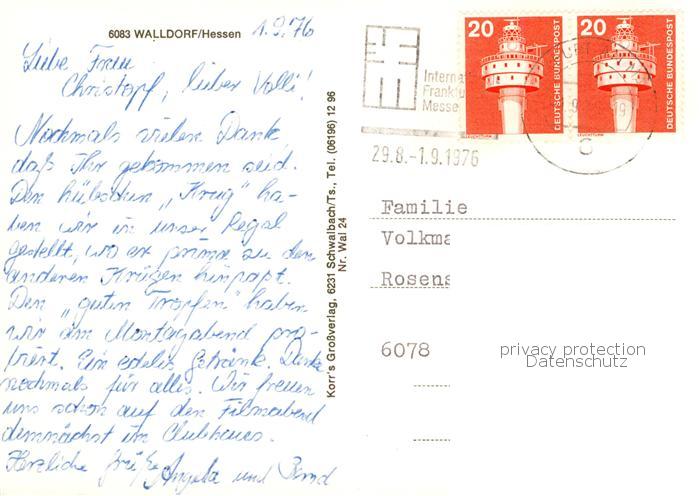 6083 WALLDORF/Hessen
1.9.76
Liebe Frau
Christopf, lieber Volli!
Nochmals vielen Dank,
daß Ihr gekommen seid.
Den hübschen "Krug" ha-
ben wir in unser Regal
gestellt, wo er prima zu den
anderen Krügen hinpaßt.
Den "guten Tropfen" haben
wir am Montagabend pro-
biert. Ein edeles Getränk. Danke
nochmals für alles. Wir freuen
uns schon auf den Filmabend
demnächst im Clubhaus.
Herzliche Grüße Angela und Bernd
Korr's Großverlag, 6231 Schwalbach/Ts., Tel. (06196) 12 96
Nr. Wal 24
20
DEUTSCHE BUNDESPOST
LEUCHTTURM
20
DEUTSCHE BUNDESPOST
LEUCHTTURM
Internat
Frankfu
Messe
29.8.-1.9.1976
c
Familie
Volkma
Rosens
6078
privacy protection
Datenschutz